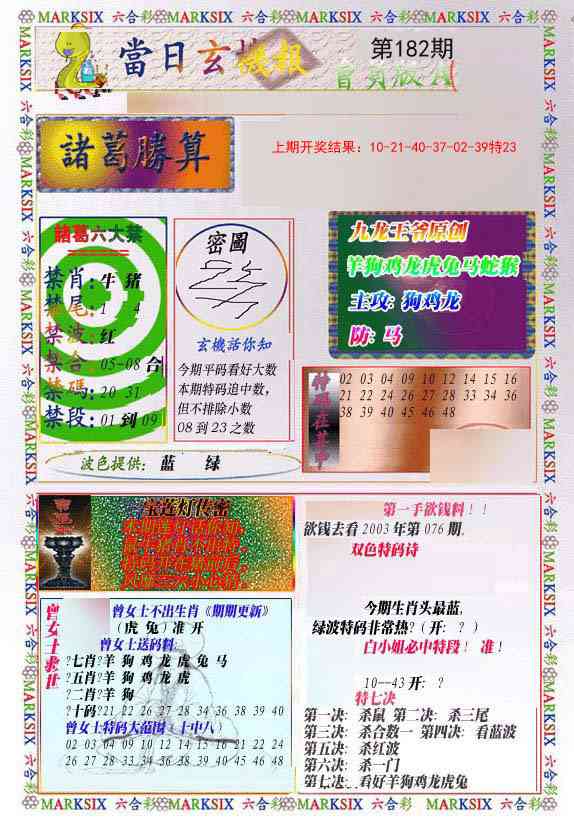 MARKSIX 六合彩 MARKSIX 六合彩 MARKSIX 六合彩 MARKSIX 六合彩
當日玄機報
第182期
諸葛勝算
上期开奖结果：10-21-40-37-02-39特23
諸葛六大禁
禁肖：牛 猪
禁尾：1 4
禁波：红
禁合：05-08 合
禁碼：20 31
禁段：01 到 09
密圖
玄機話你知
今期平码看好大数
本期特码追中数，
但不排除小数
08 到 23 之数
九龙王爷原创
羊狗鸡龙虎兔马蛇猴
主攻：狗鸡龙
防：马
02 03 04 09 10 12 14 15 16
21 22 26 27 28 33 34 36
38 39 40 45 46 48
波色提供： 蓝 绿
宝莲灯传密
第一手欲钱料！！
欲钱去看 2003 年第 076 期。
双色特码诗
今期生肖头最蓝，
绿波特码非常热？（开：？）
白小姐必中特段！ 准！
10--43 开：？
特七决
第一决：杀鼠 第二决：杀三尾
第三决：杀合数一 第四决：看蓝波
第五决：杀红波
第六决：杀一门
第七决：看好羊狗鸡龙虎兔
曾女士救世
曾女士不出生肖《期期更新》
（虎 兔）准 开
曾女士送码料：
?七肖?羊 狗 鸡 龙 虎 兔 马
?五肖?羊 狗 鸡 龙 虎
?二肖?羊 狗
?十码?21 22 26 27 28 34 36 38 39 40
曾女士特码大范围（十中八）
02 03 04 09 10 12 14 15 16 18 21 22 24
26 27 28 33 34 36 38 39 40 45 46 48
MARKSIX 六合彩 MARKSIX 六合彩 MARKSIX 六合彩 MARKSIX 六合彩